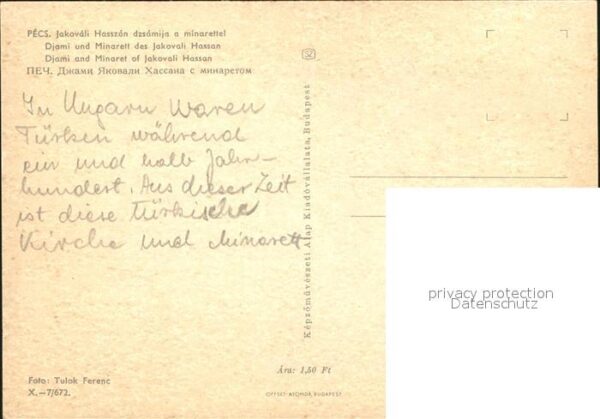 PÉCS. Jakováli Hasszán dzsámija a minarettel
Djami und Minarett des Jakovali Hassan
Djami and Minaret of Jakovali Hassan
ПЕЧ. Джами Яковали Хассана с минаретом
In Ungarn waren
Türken während
ein und halb Jahr-
hundert. Aus dieser Zeit
ist diese türkische
Kirche und Minarett
Foto: Tulok Ferenc
X.—7/672.
Képzőművészeti Alap Kiadóvállalata, Budapest
Ára: 1,50 Ft
OFFSET-ATHOR, BUDAPEST
privacy protection
Datenschutz